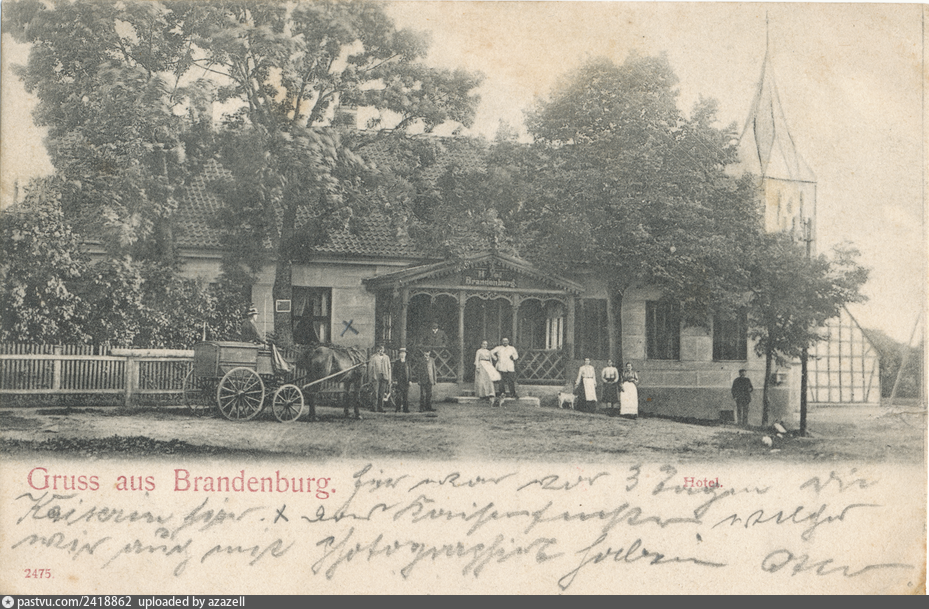 H
Brandenburg.
Gruss aus Brandenburg.
Hotel.
hier war vor 3 Tagen die
Kaiserin hier. x das Kaiserfenster welches
wir auch mit Photographiert haben
2475.
pastvu.com/2418862 uploaded by azazell